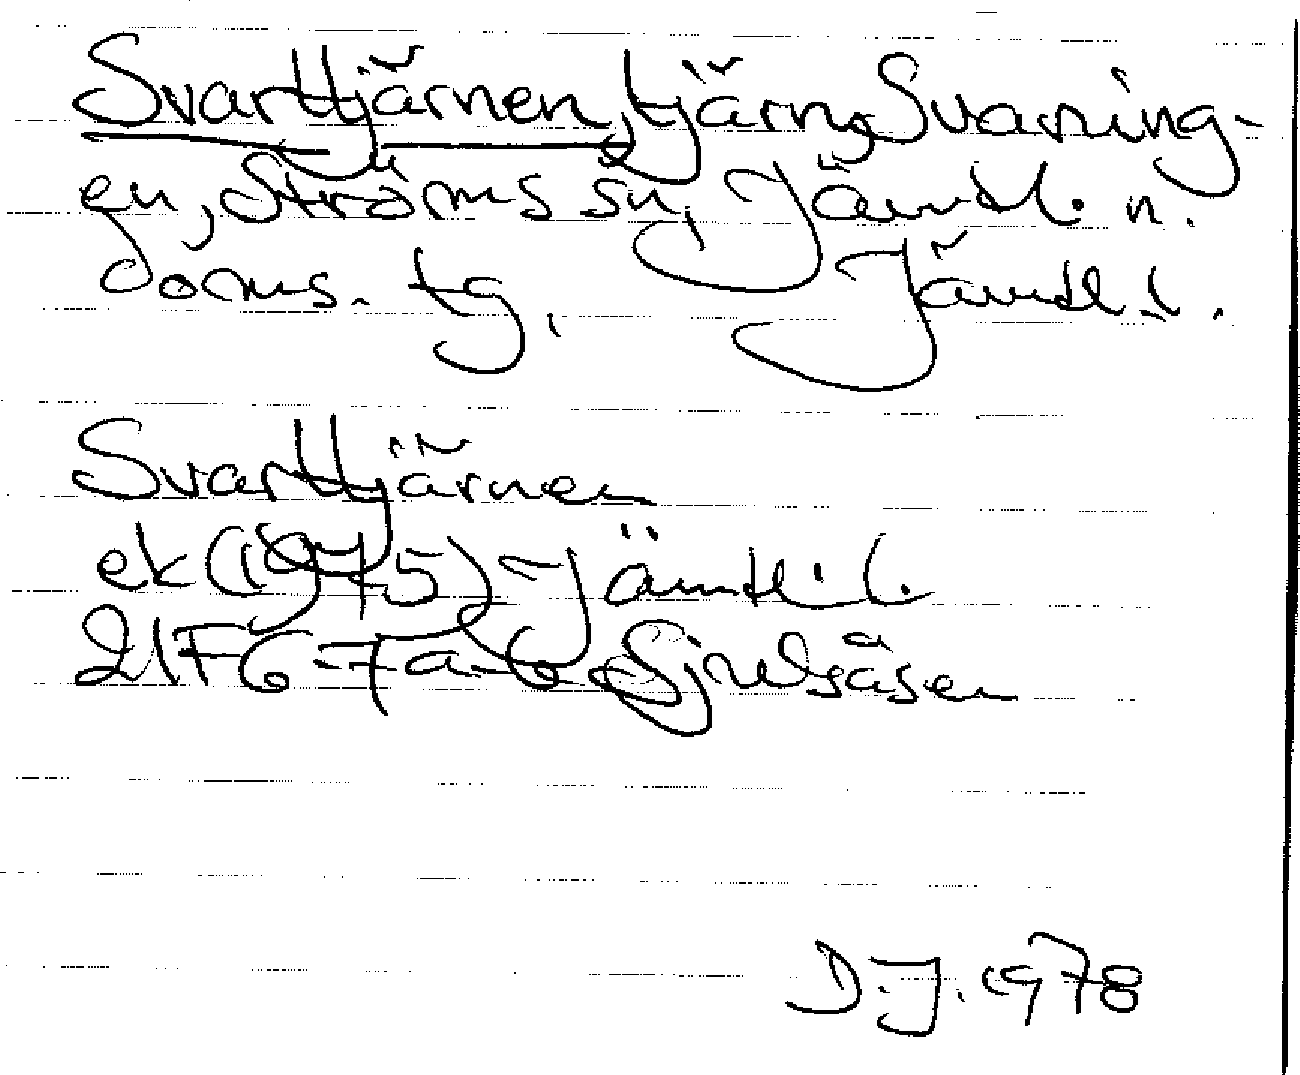 Svarttjärnen, tjärn, Svaning-
en, Ströms sn, Jämtl. n.
doms. tg, Jämtl. l.
Svarttjärnen
ek (1975) Jämtl. l.
21F6-7a-b Sjulsåsen
D.J. 1978